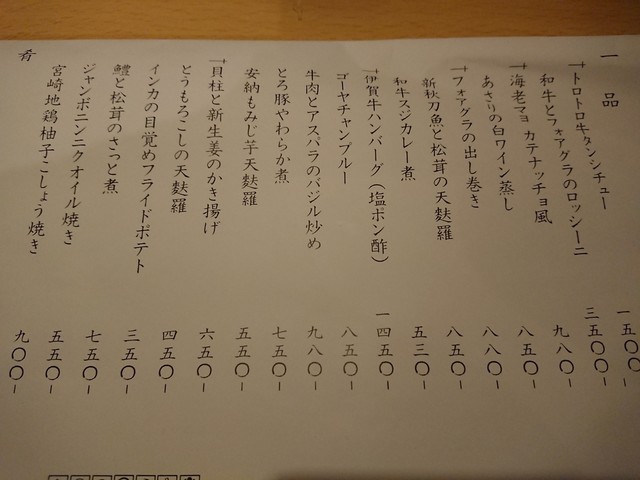 一品
†トロトロ牛タンシチュー 一五〇〇-
和牛とフォアグラのロッシーニ 三五〇〇-
†海老マヨ カテナッチョ風 九八〇-
あさりの白ワイン蒸し 八五〇-
†フォアグラの出し巻き 八八〇-
新秋刀魚と松茸の天麩羅 八五〇-
和牛スジカレー煮 五三〇-
†伊賀牛ハンバーグ(塩ポン酢) 一四五〇-
ゴーヤチャンプルー 八五〇-
牛肉とアスパラのバジル炒め 九八〇-
とろ豚やわらか煮 七五〇-
安納もみじ芋天麩羅 五五〇-
†貝柱と新生姜のかき揚げ 六五〇-
とうもろこしの天麩羅 四五〇-
インカの目覚めフライドポテト 三五〇-
鱧と松茸のさっと煮 七五〇-
ジャンボニンニクオイル焼き 五五〇-
宮崎地鶏柚子こしょう焼き 九〇〇-
肴